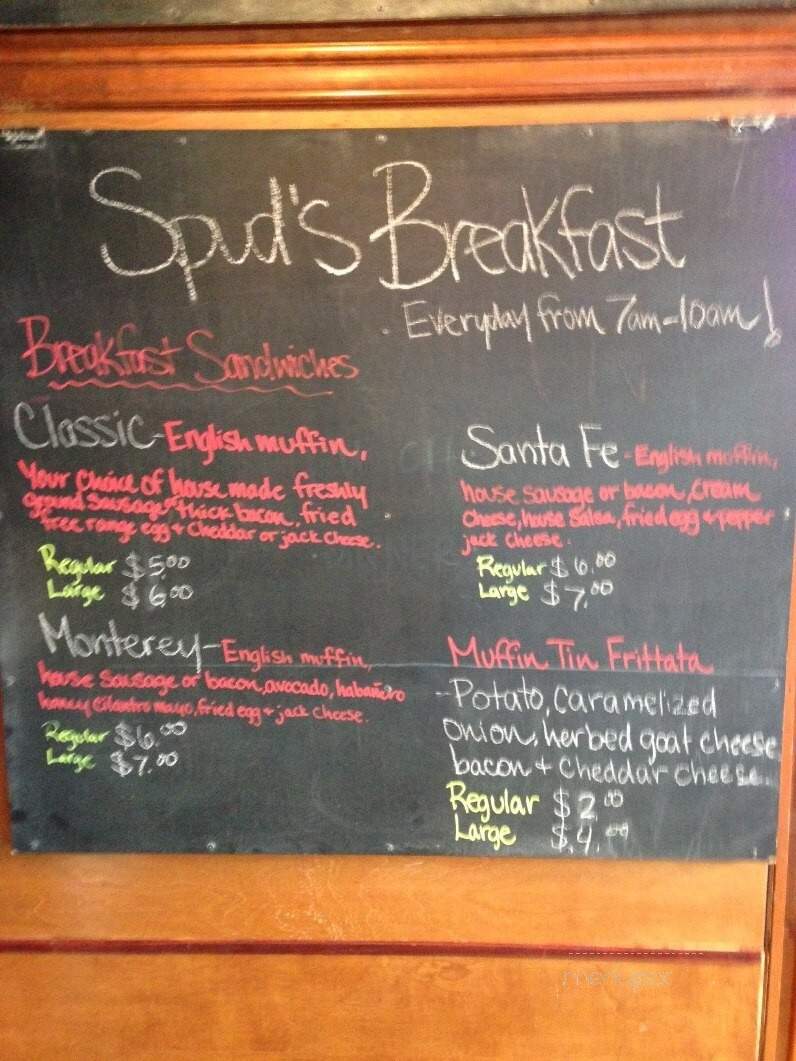 Spud's Breakfast
Everyday from 7am-10am!
Breakfast Sandwiches
Classic - English muffin,
Your choice of house made freshly
ground sausage or thick bacon, fried
free range egg + cheddar or jack cheese.
Regular $5.00
Large $6.00
Monterey - English muffin,
house sausage or bacon, avocado, habañero
honey cilantro mayo, fried egg + jack cheese.
Regular $6.00
Large $7.00
Santa Fe - English muffin,
house sausage or bacon, cream
cheese, house salsa, fried egg + pepper
jack cheese.
Regular $6.00
Large $7.00
Muffin Tin Frittata
- Potato, caramelized
onion, herbed goat cheese,
bacon + cheddar cheese.
Regular $2.00
Large $4.00